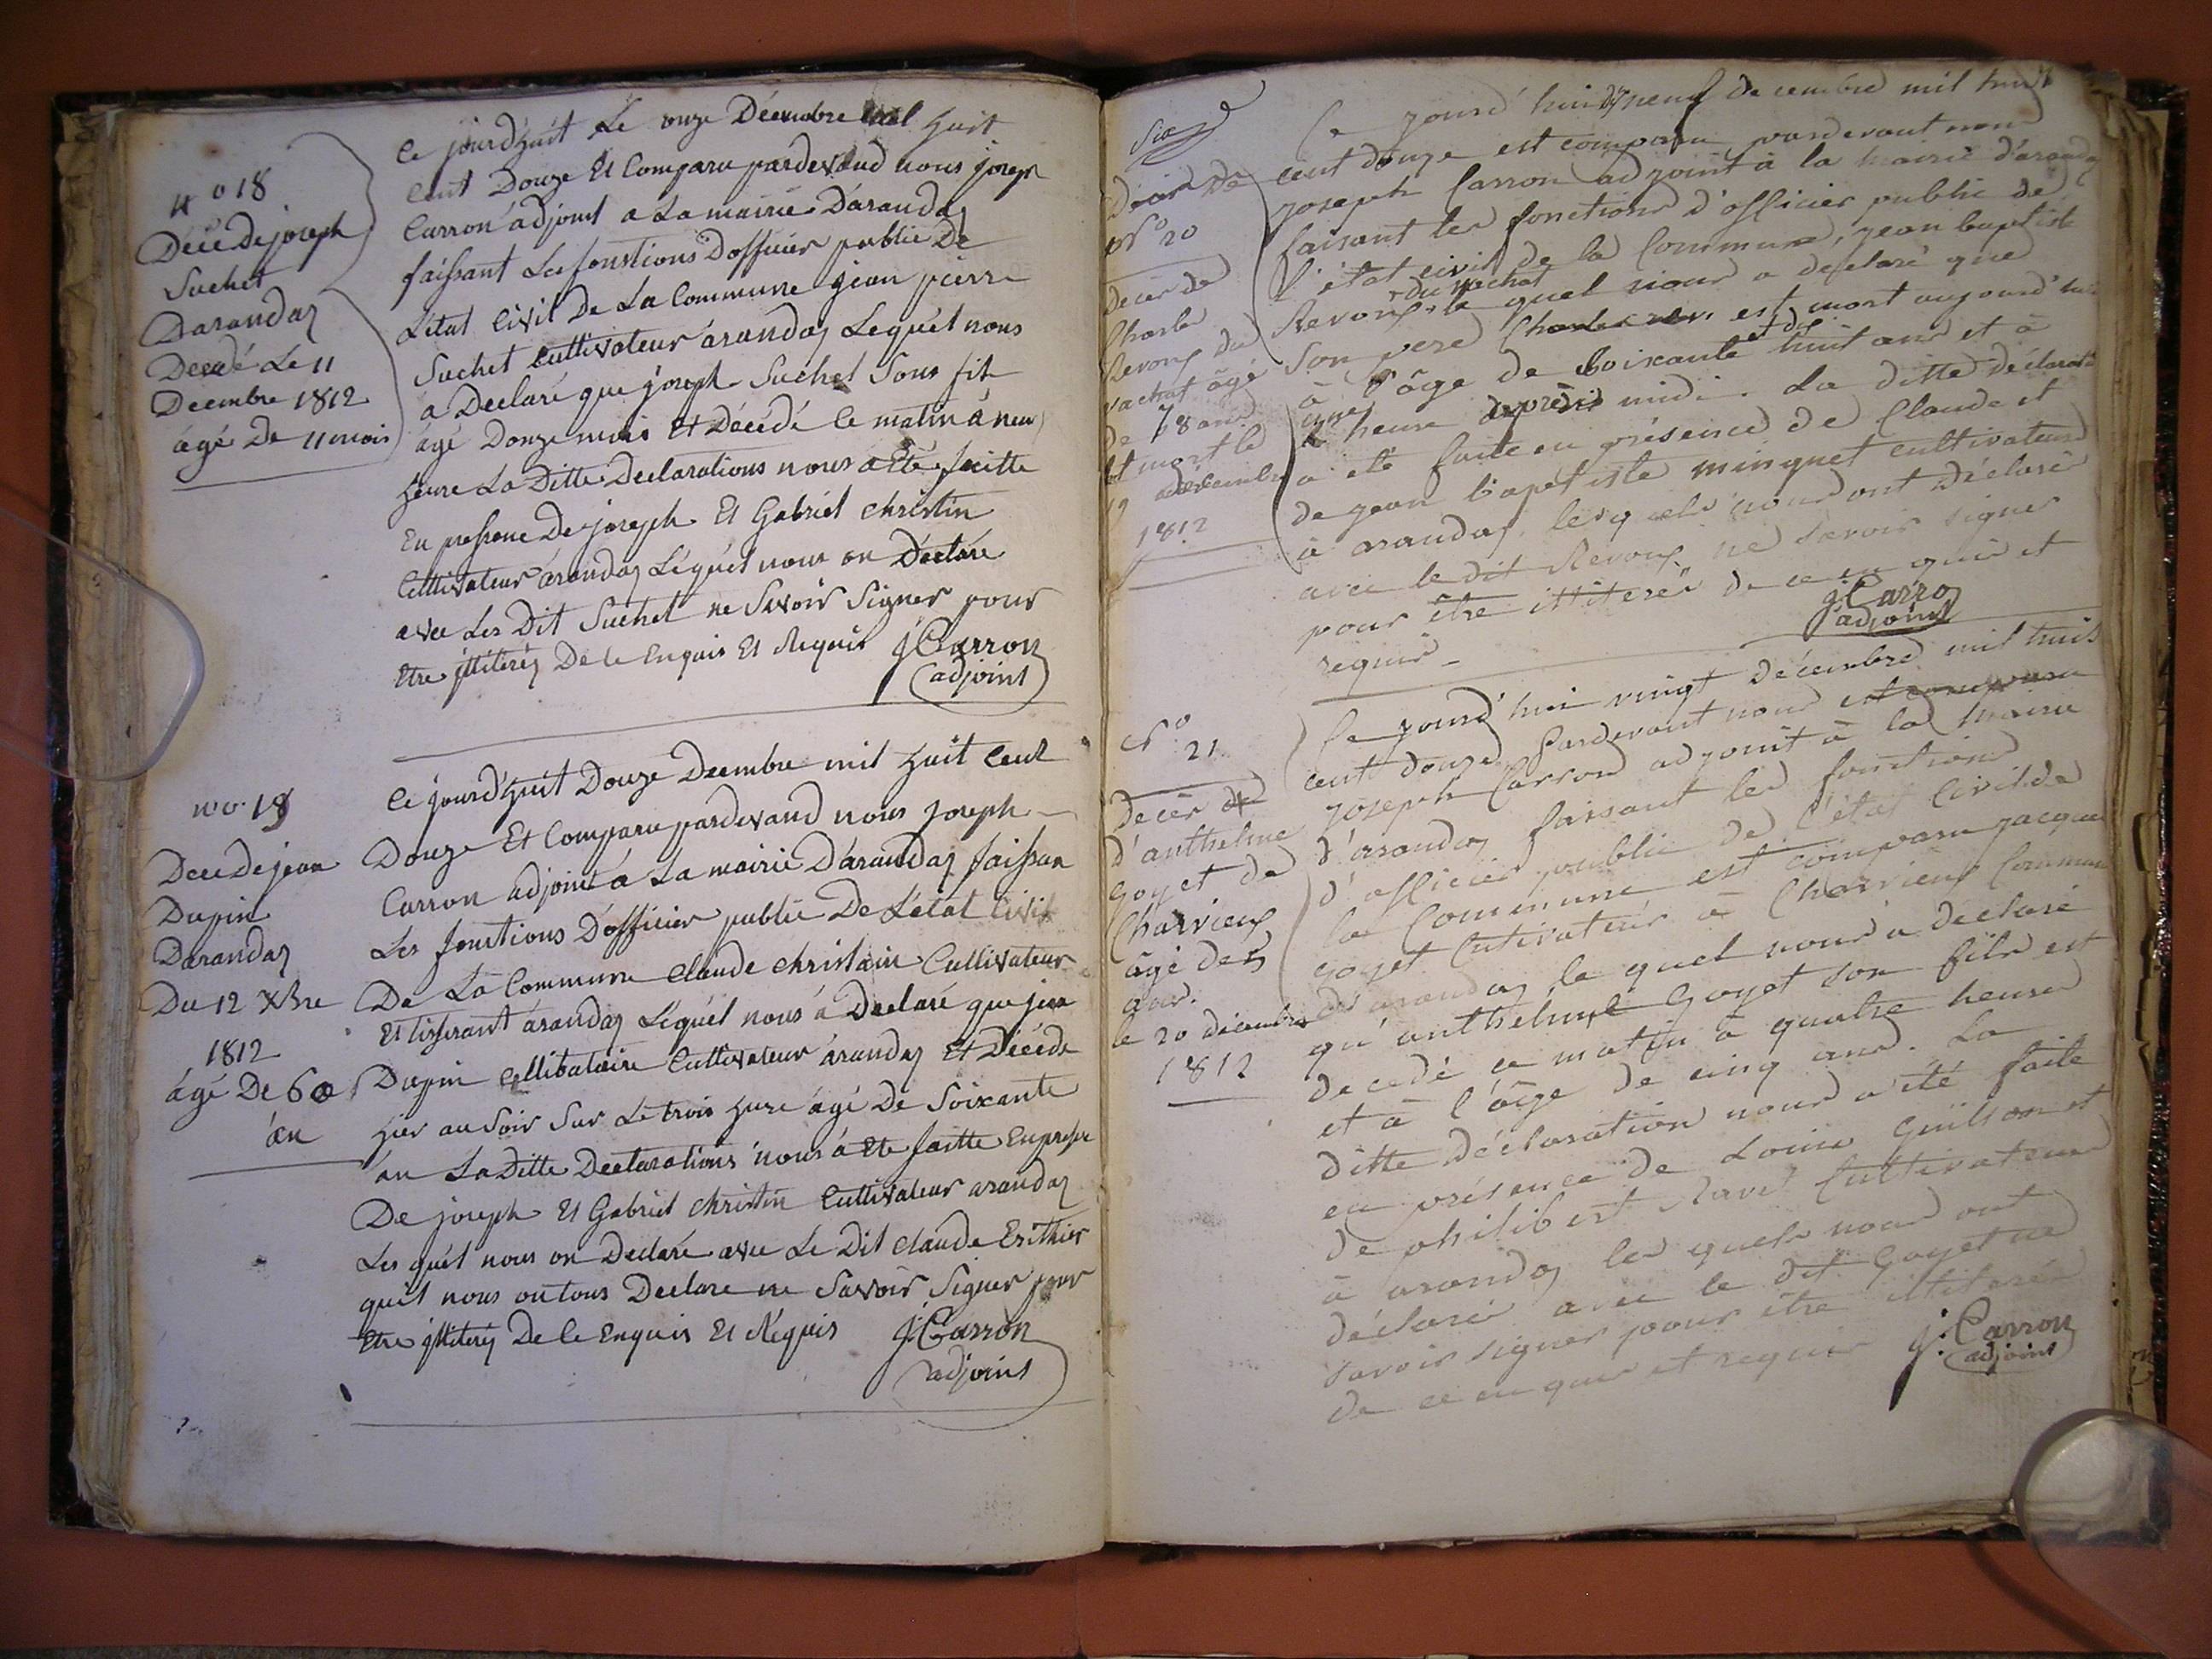 n o 18
Décè de joseph
Suchet
Darandaz
Decedé Le 11
Decembre 1812
âgé De 11 mois
Ce jourd'huit Le onze Décembre mil huit
cent Douze Et Comparu pardevand nous joseph
Carron adjoint a La mairie D'arandaz
faissant Les fonstions D'officier public De
L'état Civil De La Commune jean pierre
Suchet Cultivateur àrandaz Lequél nous
a Declaré que joseph Suchet Sons fils
âgé Douze mois Et Décédé Ce matin à neuf
heure La Ditte Declarations nous a Eté faitte
En pressene De joseph Et Gabriel christin
Cultivateur àrandaz Léquél nous on Déclare
avec Les Dit Suchet ne Savoir Signer pour
Etre jlliteréz De Ce Enquis Et Requis j. Carron
adjoint
no. 19
Dece De jean
Dupin
Darandaz
Du 12 Xbre
1812
âgé De 60
àn
Ce jourd'huit Douze Decembre mil huit Cent
Douze Et Comparu pardevand nous joseph
Carron adjoint à La mairie D'arandaz faissan
Les fonstions D'officier public De L'état Civil
De La Commune Claude christain Cultivateur
Et tisserant àrandaz Léquél nous à Declaré que jean
Dupin Cellibataire Cultivateur àrandaz Et Décéde
hier au Soir Sur Le trois hure âgé De Soixante
àn La Ditte Declarations nous à Eté faitte En presse
De joseph Et Gabriel christin Cultivateur arandaz
Les quél nous on Declaré avec Le Dit Claude
quil nous on tous Declare ne Savoir Signer pour
Etre jlliteréz De Ce Enquis Et Réquis j. Carron
adjoint
Décès De
N° 20
Décès de
Charle
Revoux du
vachat âgé
de 78 ans
et mort le
19 décembre
1812
Ce jourd'hui dix neuf decembre mil huit
cent douze est comparu pardevant nou
Joseph Carron adjoint à la mairie d'arandaz
faisant les fonctions d'officier public de
l'état civil de la Commune, jean baptiste
du vachat
Revoux le quel nous a declaré que
son pere Charles rev. est mort aujourd'hui
à l'âge de soixante dix huit ans et à
une heure après midi. La ditte déclaration
a été faite en présence de Claude et
de jean bapetiste minguet cultivateurs
à arandaz lesquels nous ont déclaré
avec le dit Revoux ne savoir signer
pour être illiterés de ce enquis et
requis j. Carron
adjoint
N° 21
Décès de
d'anthelme
goyet de
Charvieux
âgé de 5
ans.
le 20 décembre
1812
Ce jourd'hui vingt décembre mil huit
cent douze Pardevant nous est comparu
Joseph Carron adjoint à la mairie
d'arandaz faisant les fonctions
d'officier public de l'état Civil de
la Commune est comparu jacque
goyet Cultivateur à Charvieux Commune
d'arandaz le quel nous a déclaré
qu'anthelme Goyet son fils est
decedé ce matin à quatre heures
et à l'âge de cinq ans. La
ditte déclaration nous a été faite
en présence de Louis et
de philibert Ravet Cultivateurs
à arandaz les quels nous ont
déclaré avec le dit Goyet ne
savoir signer pour être illiterés
de ce enquis et requis j. Carron
adjoint